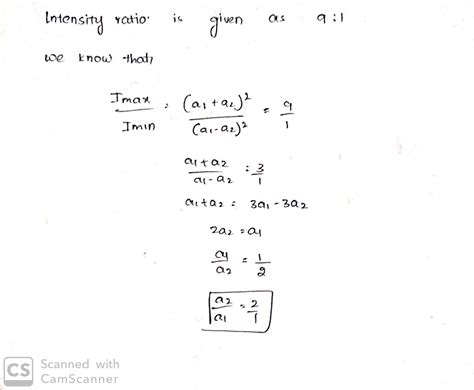 Intensity ratio is given as 9:1
we know that,
Imax/Imin = (a1+a2)²/(a1-a2)² = 9/1
a1+a2/a1-a2 = 3/1
a1+a2 = 3a1-3a2
2a2 = a1
a1/a2 = 1/2
a2/a1 = 2/1
CS Scanned with
CamScanner